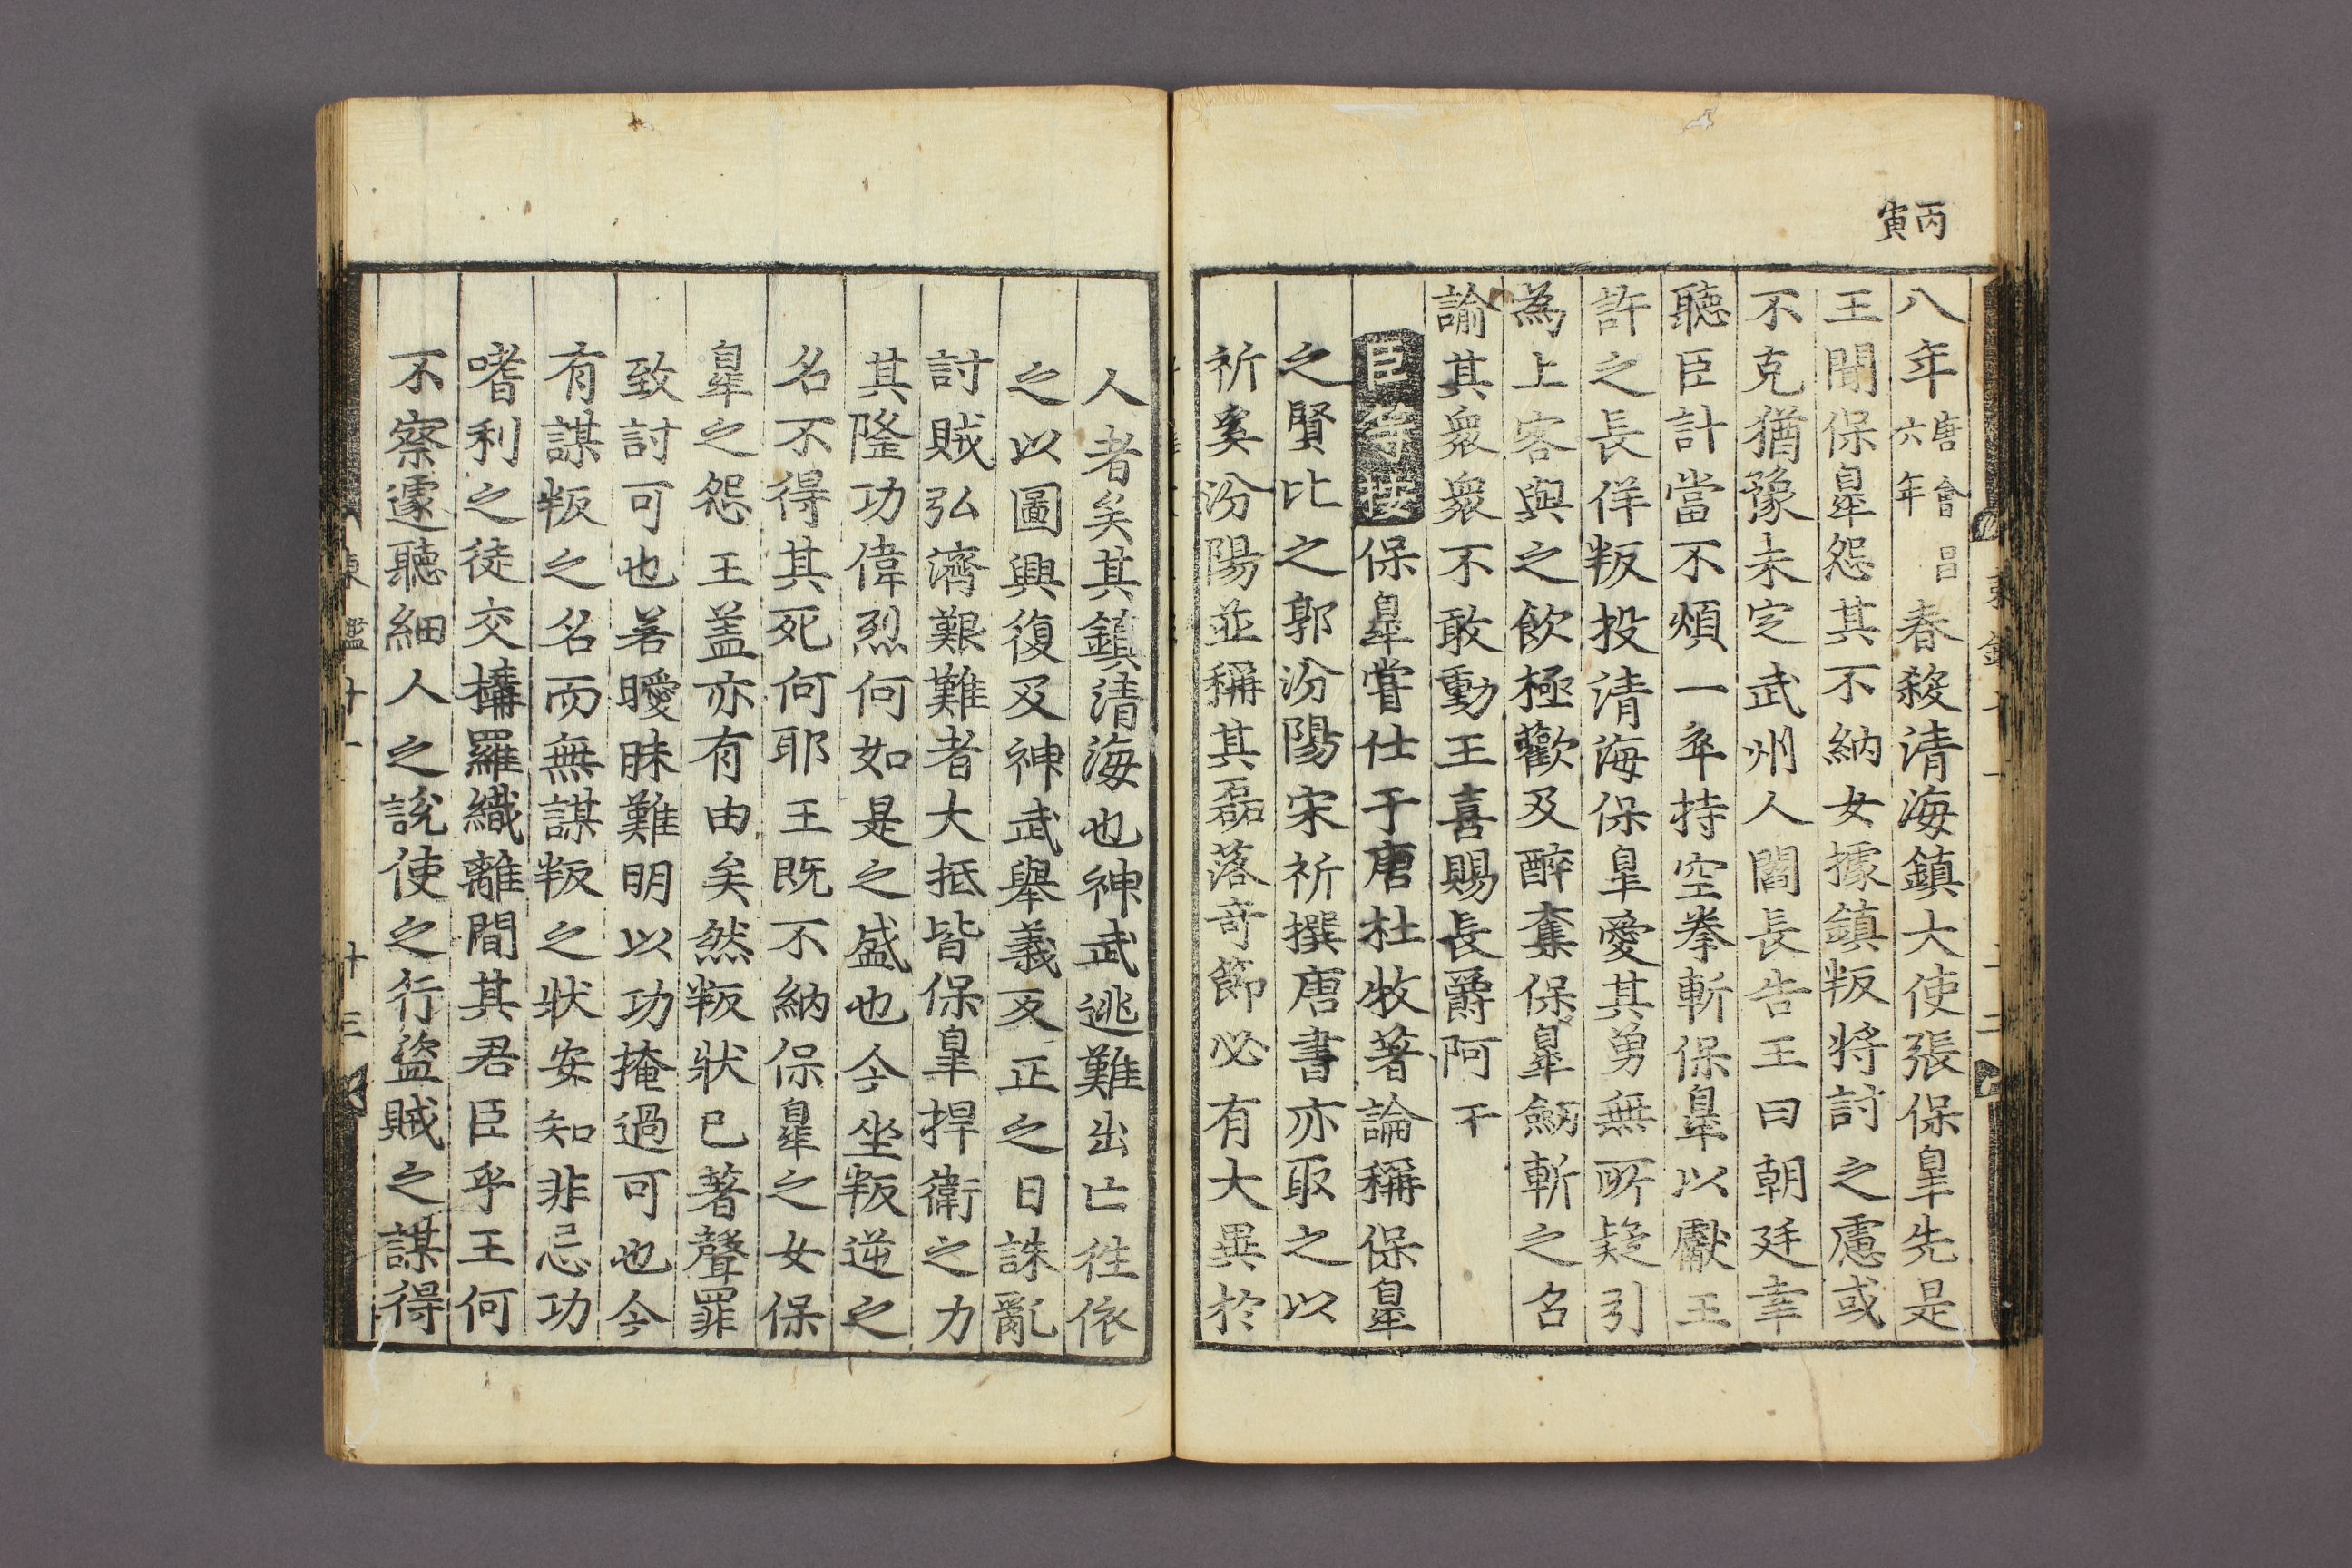 丙寅
八年唐會昌六年春殺清海鎮大使張保皐先是
王聞保皐怨其不納女據鎮叛將討之慮或
不克猶豫未定武州人閻長告王曰朝廷幸
聽臣計當不煩一卒持空拳斬保皐以獻王
許之長佯叛投清海保皐愛其勇無所疑引
為上客與之飮極歡及醉奪保皐劒斬之召
諭其衆衆不敢動王喜賜長爵阿干
臣等按保皐嘗仕于唐杜牧著論稱保皐
之賢比之郭汾陽宋祈撰唐書亦取之以
祈奚汾陽並稱其磊落奇節必有大異於
人者矣其鎮清海也神武逃難出亡往依
之以圖興復及神武擧義反正之日誅亂
討賊弘濟艱難者大抵皆保皐捍衛之力
其隆功偉烈何如是之盛也今坐叛逆之
名不得其死何耶王既不納保皐之女保
皐之怨王盖亦有由矣然叛狀已著聲罪
致討可也若曖昧難明以功掩過可也今
有謀叛之名而無謀叛之狀安知非忌功
嗜利之徒交構羅織離間其君臣乎王何
不察遽聽細人之說使之行盜賊之謀得
東鑑十一 十三